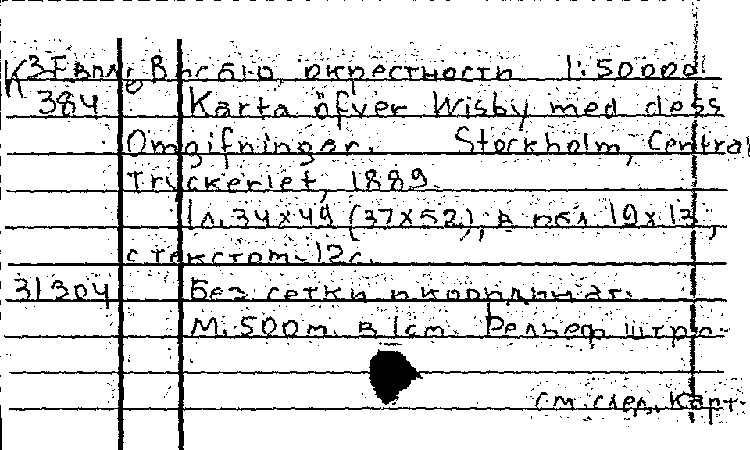 К 3-Евпл. Висбю, окрестности 1:50000
384 Karta öfver Wisby med dess
Omgifningar. Stockholm, Central
Tryckeriet, 1889.
1 л. 34х49 (37х52), в обл. 19х13,
с текстом. 12 с.
31304 Без сетки и координат.
М. 500 m. в 1 cm. Рельеф штри-
см. след. карт.